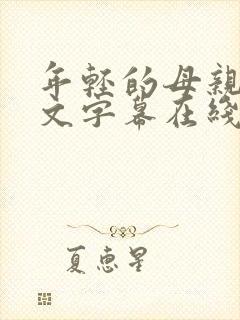 年轻的母親
文字幕在綫
夏惠星